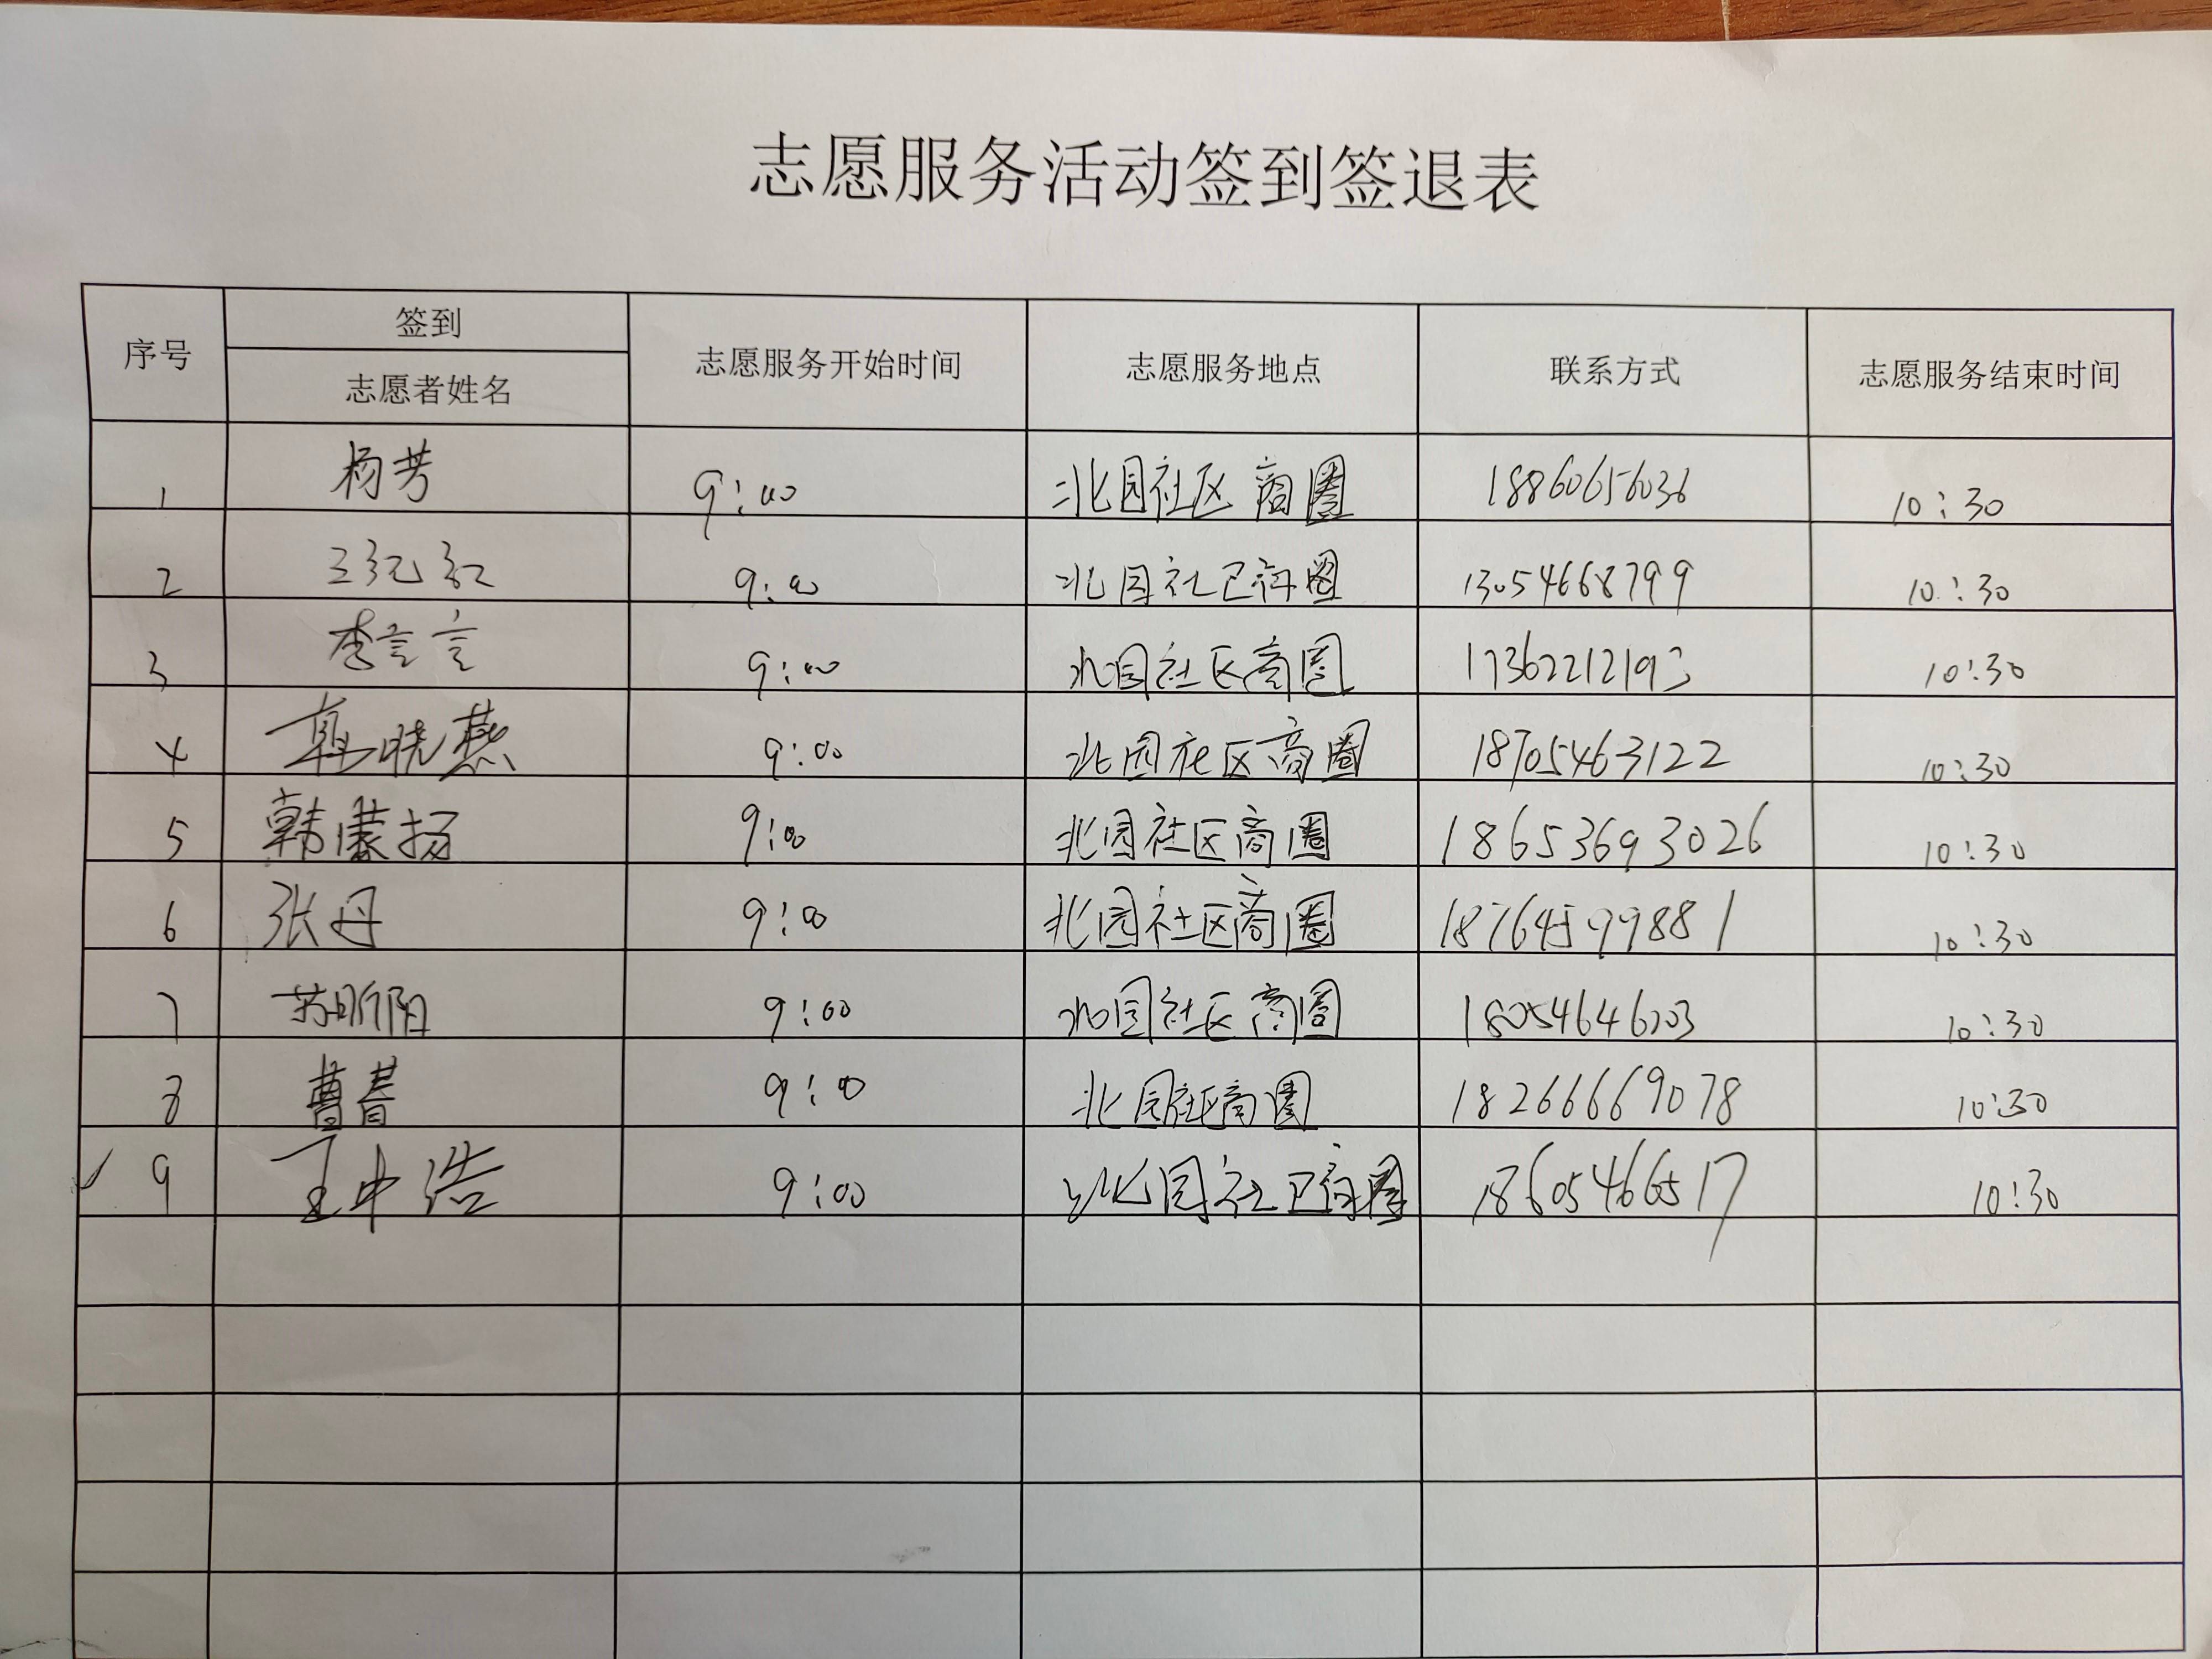 志愿服务活动签到签退表
序号 签到 志愿服务开始时间 志愿服务地点 联系方式 志愿服务结束时间
志愿者姓名
1 杨芳 9:00 北园社区商圈 18860656036 10:30
2 9:00 北园社区商圈 13054668799 10:30
3 李言言 9:00 北园社区商圈 17362212193 10:30
4 郭晓燕 9:00 北园社区商圈 18705463122 10:30
5 韩蒙扬 9:00 北园社区商圈 18653693026 10:30
6 张丹 9:00 北园社区商圈 18764599881 10:30
7 苏昕阳 9:00 北园社区商圈 10:30
8 曹春 9:00 北园社区商圈 18266669078 10:30
9 王中浩 9:00 北园社区商圈 18605466517 10:30